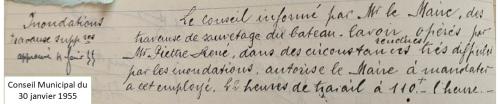 Inondations
travaux supp res
approuvé 4 fév 55
Le Conseil informé par Mr le Maire, des
travaux de sauvetage du bateau-lavoir opérés par
Mr Piettre René, dans des circonstances rendues très difficiles
par les inondations, autorise le Maire à mandater
à cet employé, 12 heures de travail à 110f l'heure.
Conseil Municipal du
30 janvier 1955